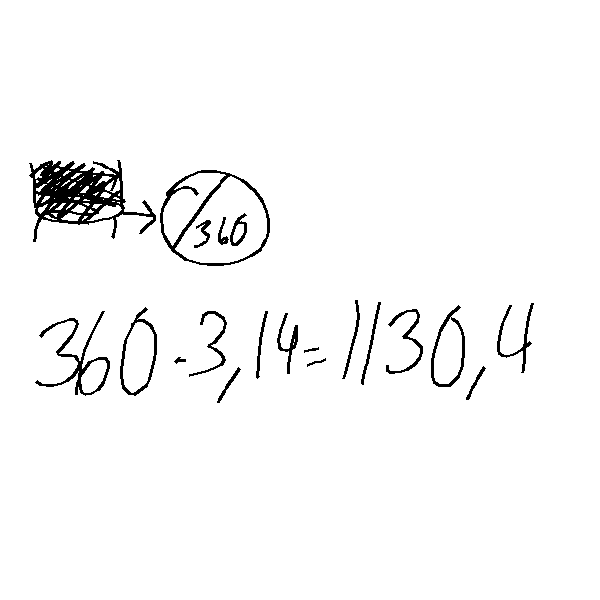 360
360 · 3,14 = 1130,4